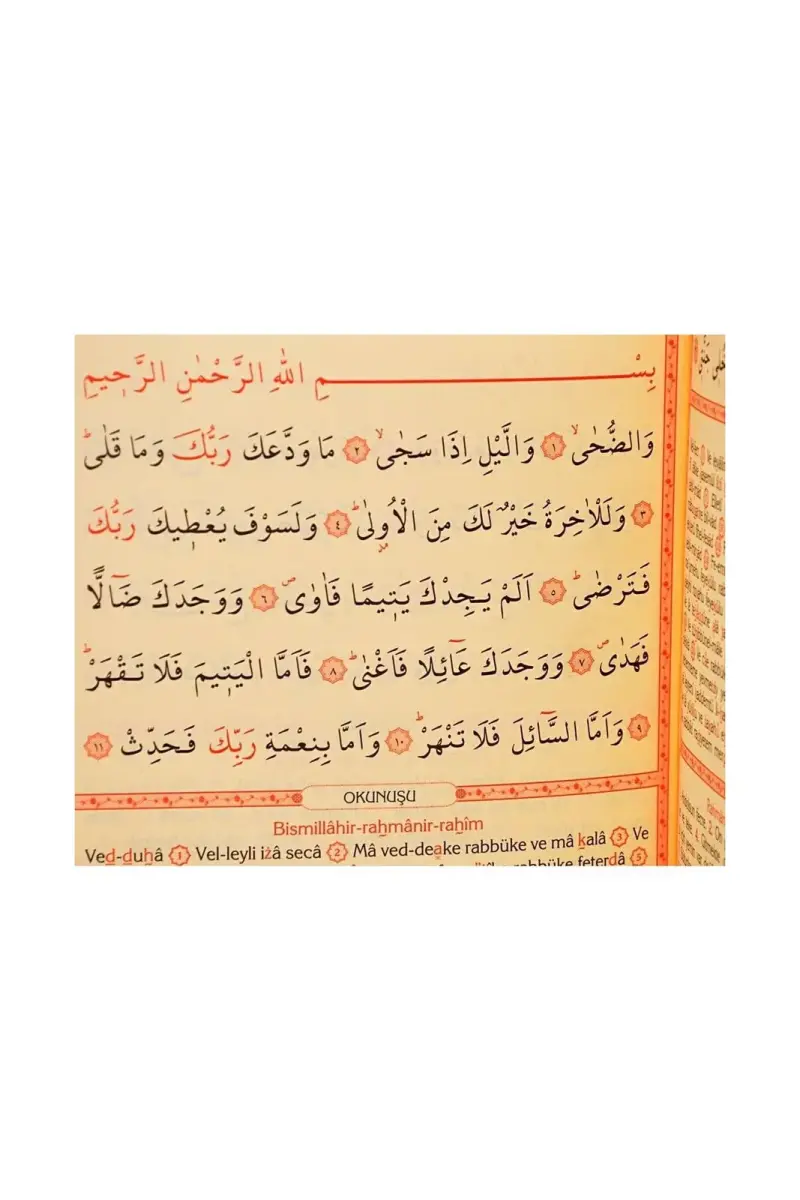 بِسْــــــمِ اللّٰهِ الرَّحْمٰنِ الرَّحٖيمِ
وَالضُّحٰىۙ ١ وَالَّيْلِ اِذَا سَجٰىۙ ٢ مَا وَدَّعَكَ رَبُّكَ وَمَا قَلٰىؕ
٣ وَلَلْاٰخِرَةُ خَيْرٌ لَكَ مِنَ الْاُو۫لٰىؕ ٤ وَلَسَوْفَ يُعْطٖيكَ رَبُّكَ
فَتَرْضٰىؕ ٥ اَلَمْ يَجِدْكَ يَتٖيمًا فَاٰوٰىࣕ ٦ وَوَجَدَكَ ضَٓالًّا
فَهَدٰىࣕ ٧ وَوَجَدَكَ عَٓائِلًا فَاَغْنٰىؕ ٨ فَاَمَّا الْيَتٖيمَ فَلَا تَقْهَرْؕ
٩ وَاَمَّا السَّٓائِلَ فَلَا تَنْهَرْؕ ١٠ وَاَمَّا بِنِعْمَةِ رَبِّكَ فَحَدِّثْ ١١
OKUNUŞU
Bismillâhir-rahmânir-rahîm
Ved-duhâ 1 Vel-leyli iżâ secâ 2 Mâ ved-deake rabbüke ve mâ kalâ 3 Ve
rabbüke feterdâ 5